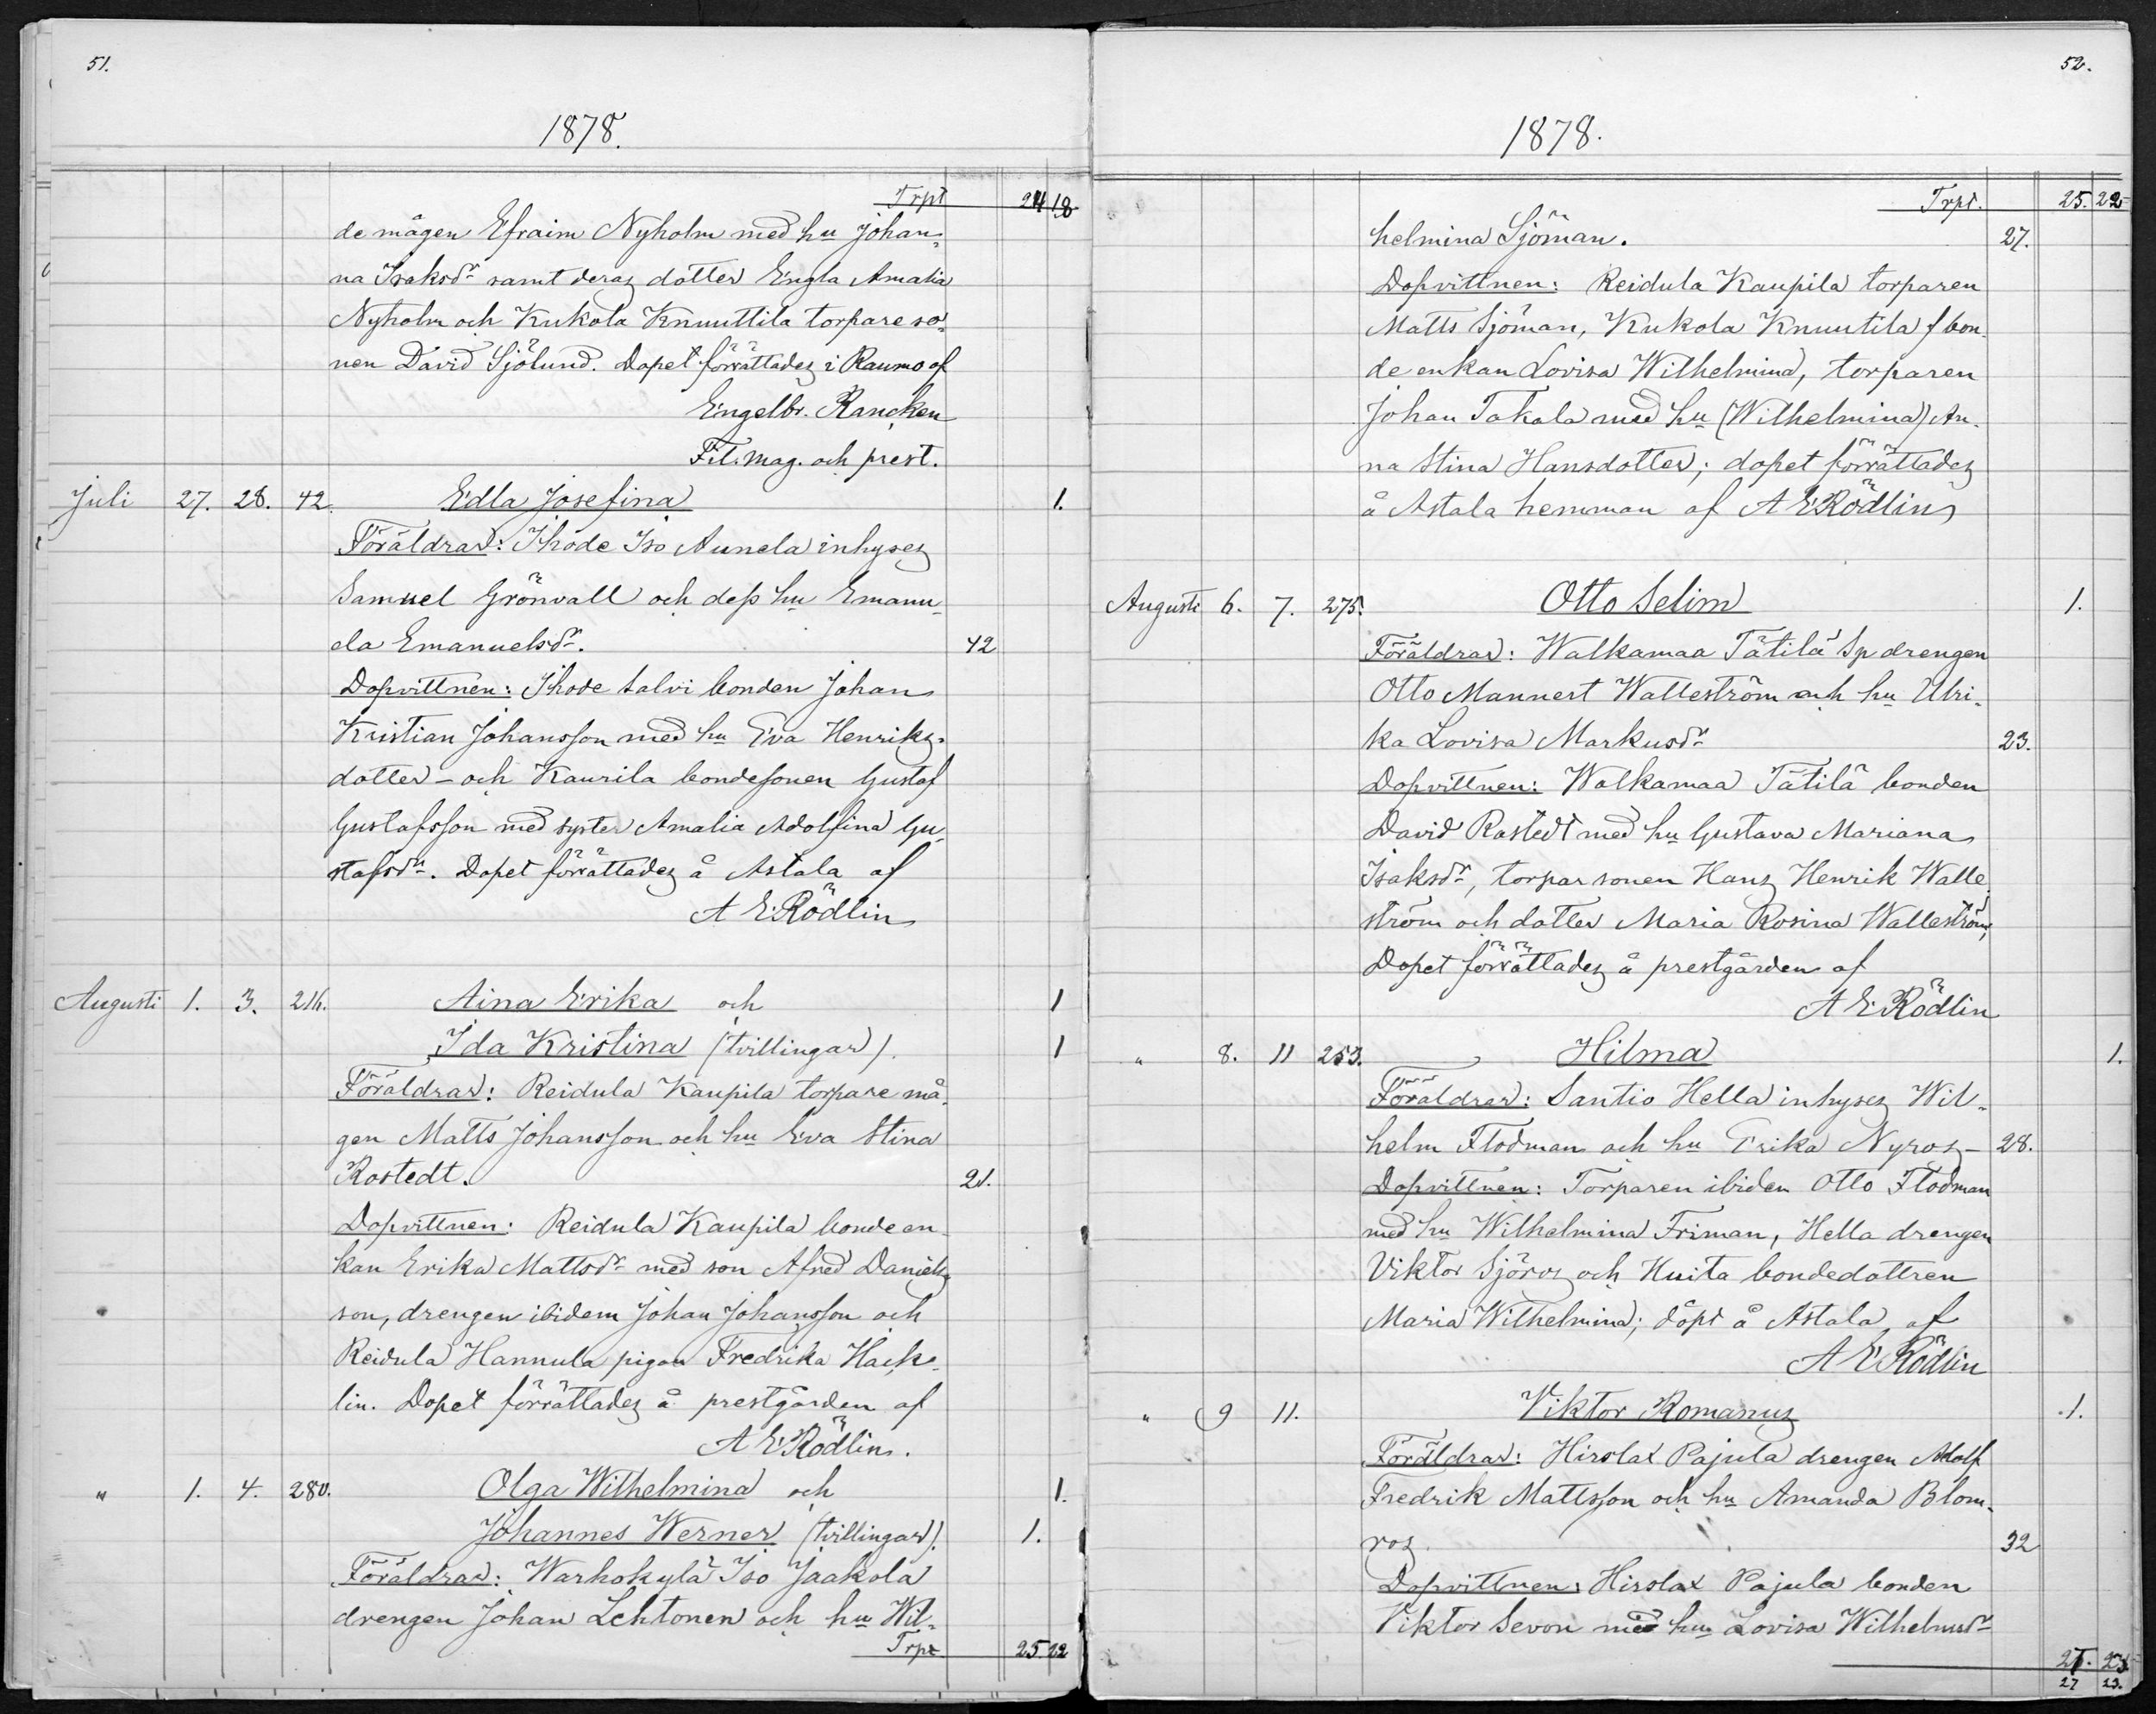 51.
1878.
Trpt 24 18
de mågen Efraim Nyholm med hu Johan-
na Isaksdr samt deras dotter Engla Amalia
Nyholm och Kukola Knuuttila torpareso-
nen David Sjölund. Dopet förrättades i Raumo af
Engelbr. Rancken
Fil. mag. och prest.
Juli 27. 28. 42. Edla Josefina 1.
Föräldrar: Ihode Iso Aunela inhyses
Samuel Grönvall och dess hu Emanu-
ela Emanuelsdr. 42
Dopvittnen: Ihode Salvi bonden Johan
Kristian Johansson med hu Eva Henriks-
dotter – och Kaurila bondesonen Gustaf
Gustafsson med syster Amalia Adolfina Gu-
stafsdr. Dopet förrättades å Astala af
A E Rödlin
Augusti 1. 3. 216. Aina Erika och 1
Ida Kristina (tvillingar). 1
Föräldrar: Reidula Kaupila torpare må-
gen Matts Johansson och hu Eva Stina
Rostedt. 21.
Dopvittnen: Reidula Kaupila bonde en-
kan Erika Mattsdr med son Afred Daniels
son, drengen ibidem Johan Johansson och
Reidula Hannula pigan Fredrika Hack-
lin. Dopet förrättades å prestgården af
A E Rödlin.
" 1. 4. 280. Olga Wilhelmina och 1.
Johannes Werner (tvillingar). 1.
Föräldrar: Warhokylä Iso Jaakola
drengen Johan Lehtonen och hu Wil-
Trpt 25. 22
52.
1878.
Trpt. 25. 22
helmina Sjöman. 27.
Dopvittnen: Reidula Kaupila torparen
Matts Sjöman, Kukola Knuutila f bon-
de enkan Lovisa Wilhelmina, torparen
Johan Takala med hu (Wilhelmina) An-
na Stina Hansdotter; dopet förrättades
å Astala hemman af A E Rödlin
Augusti 6. 7. 275. Otto Selim 1.
Föräldrar: Walkamaa Tätilä Sp drengen
Otto Mannert Walleström och hu Ulri-
ka Lovisa Markusdr 23.
Dopvittnen: Walkamaa Tätilä bonden
David Rostedt med hu Gustava Mariana
Isaksdr, torparsonen Hans Henrik Walle
ström och dotter Maria Rosina Walleström,
Dopet förrättades å prestgården af
A E Rödlin
" 8. 11 253. Hilma 1.
Föräldrar: Santio Hella inhyses Wil-
helm Flodman och hu Erika Nyros – 28.
Dopvittnen: Torparen ibiden Otto Flodman
med hu Wilhelmina Friman, Hella drengen
Viktor Sjöros och Huita bondedottren
Maria Wilhelmina; döpt å Astala af
A E Rödlin
" 9 11. Viktor Romanus 1.
Föräldrar: Hirslax Pajula drengen Adolf
Fredrik Mattsson och hu Amanda Blom-
ros. 32
Dopvittnen: Hirslax Pajula bonden
Viktor Sevon med hu Lovisa Wilhelmsdr
27 23.